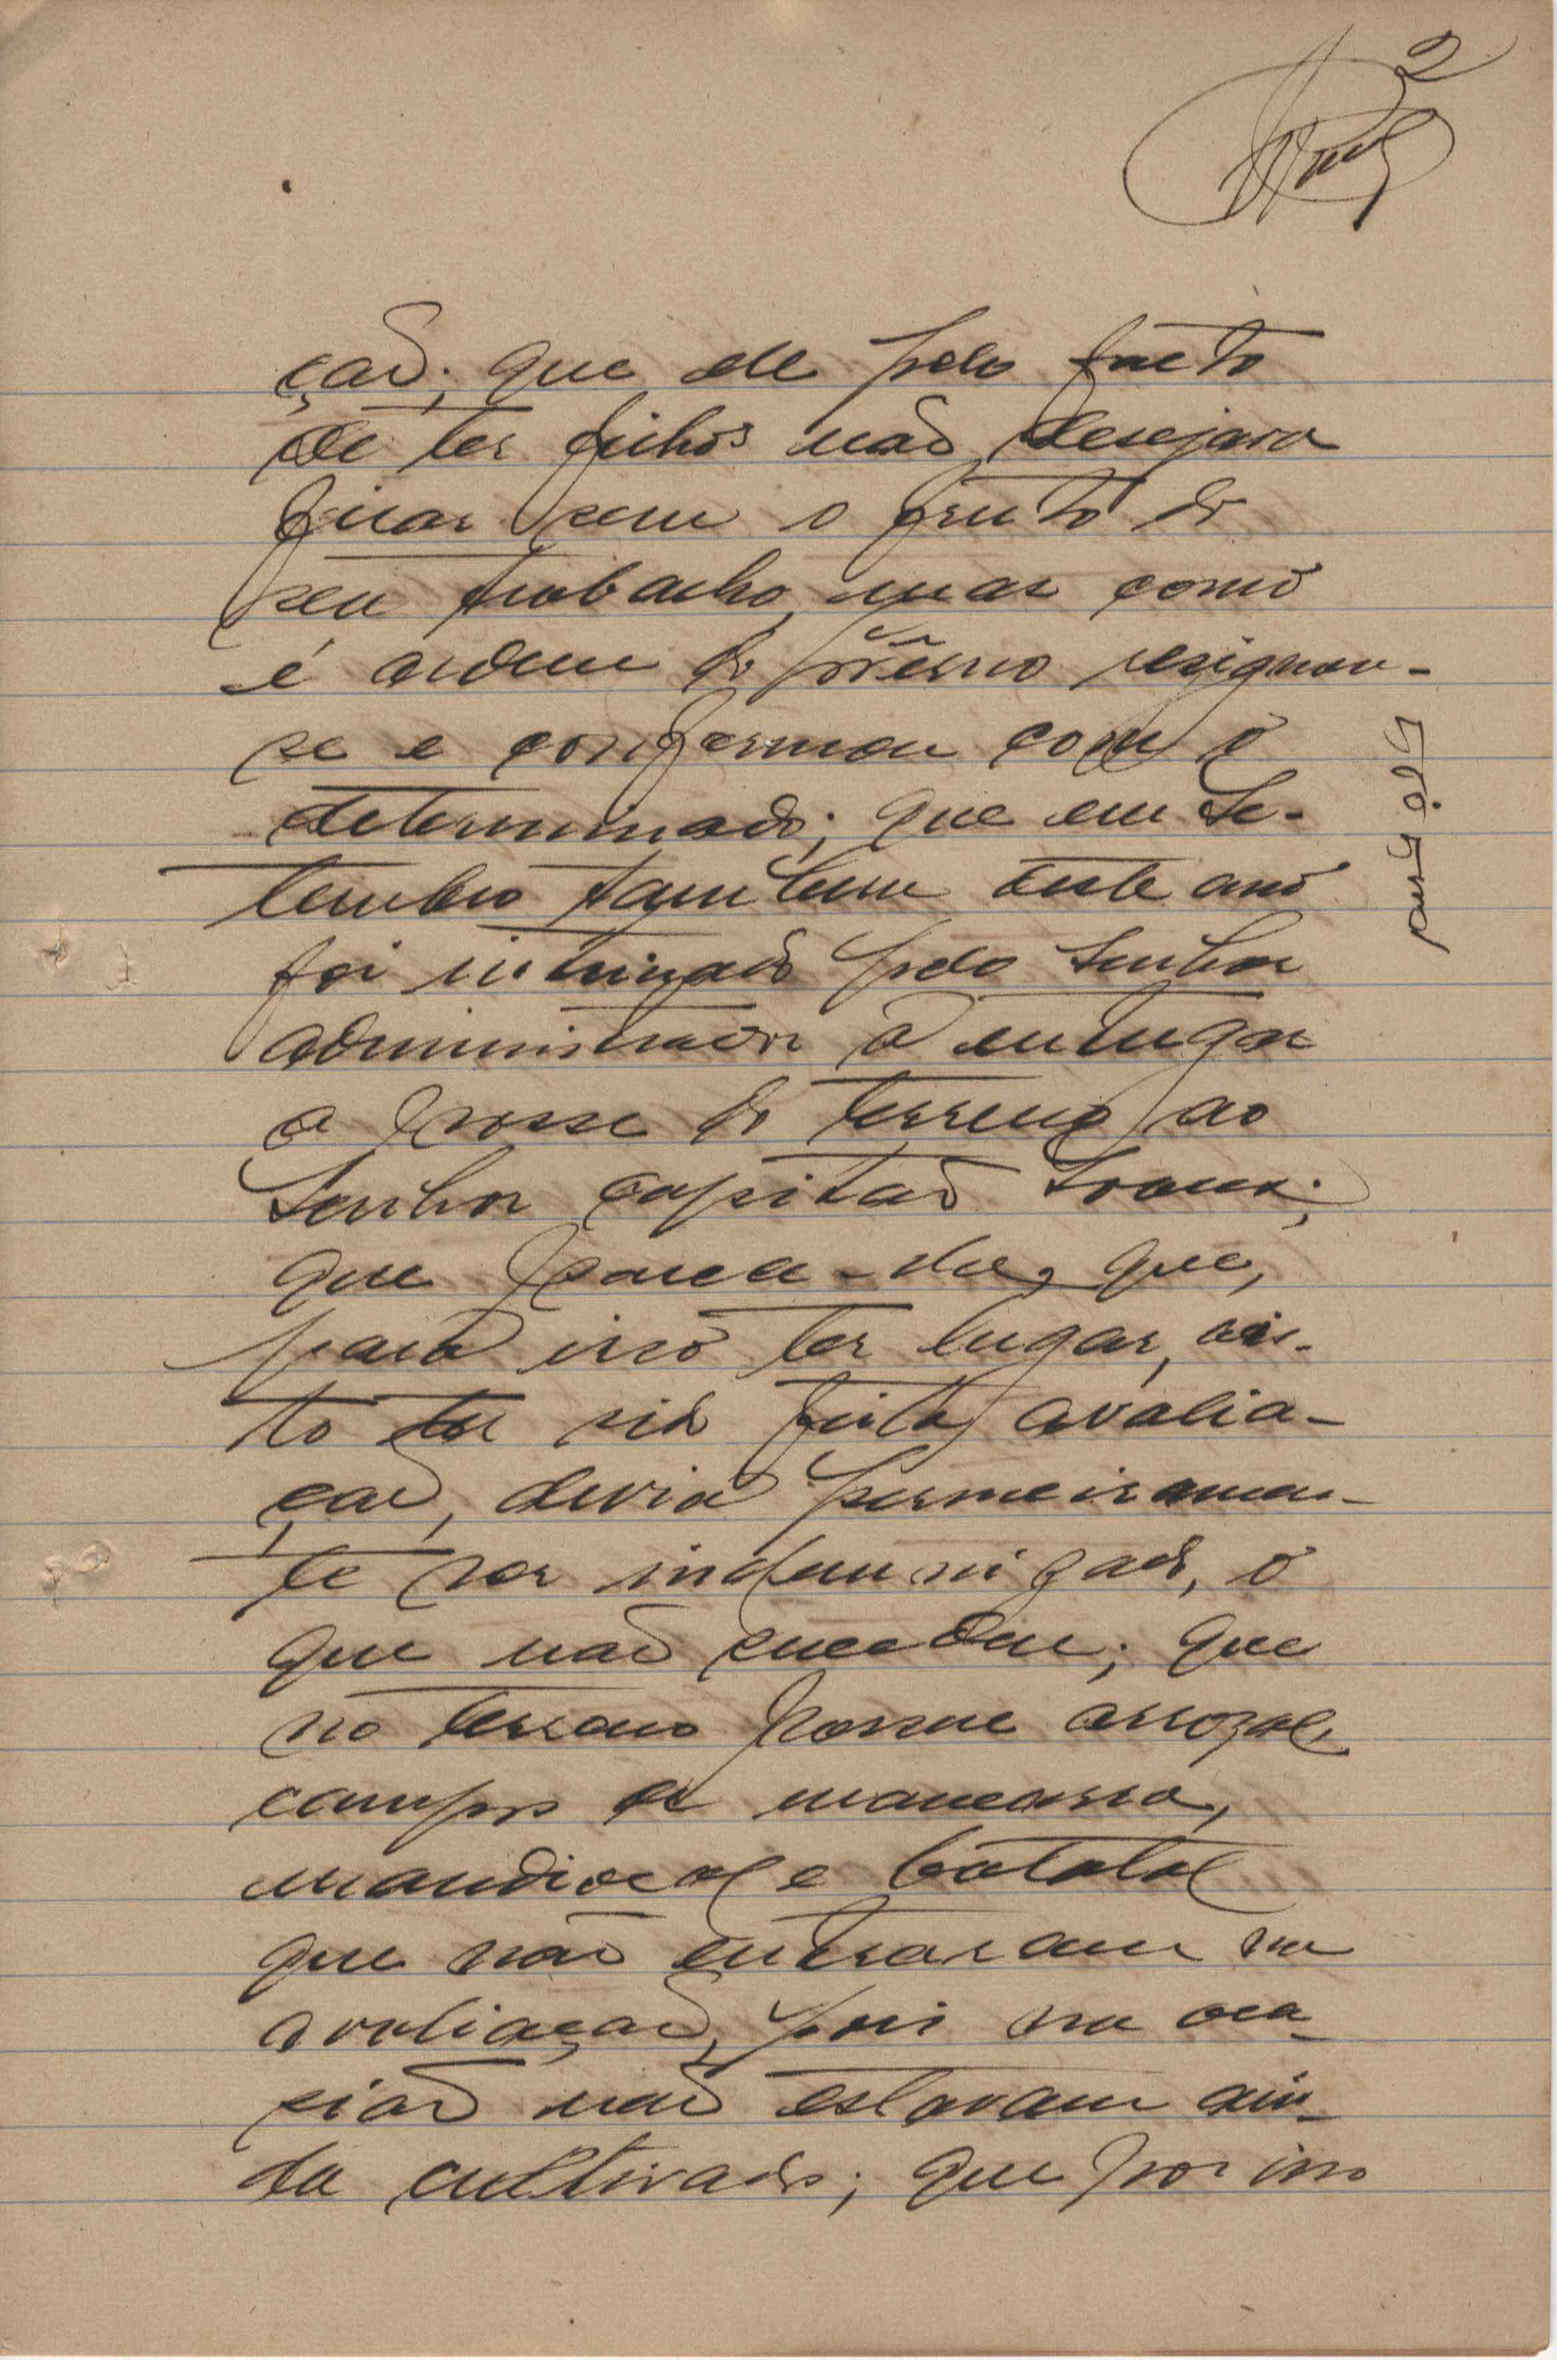 2
ção; que ele pelo facto
de ter filhos não desejava
ficar sem o fruto do
seu trabalho, mas como
é ordem do resignou-
se e conformou com o
determinado; que em Se-
tembro tambem este ano
foi intimado pelo Senhor
administrador a entregar
a posse do terreno ao
Senhor capitão
que parece-lhe que,
para isso ter lugar, vis-
to ter sido feita avalia-
ção, devia permeiramen-
te ser indemnizado, o
que não sucedeu; que
no terreno possue arrozal,
campos de mancarra,
mandiocal e batatal
que não entraram na
avaliação, pois na oca-
sião não estavam ain-
da cultivados; que por isso